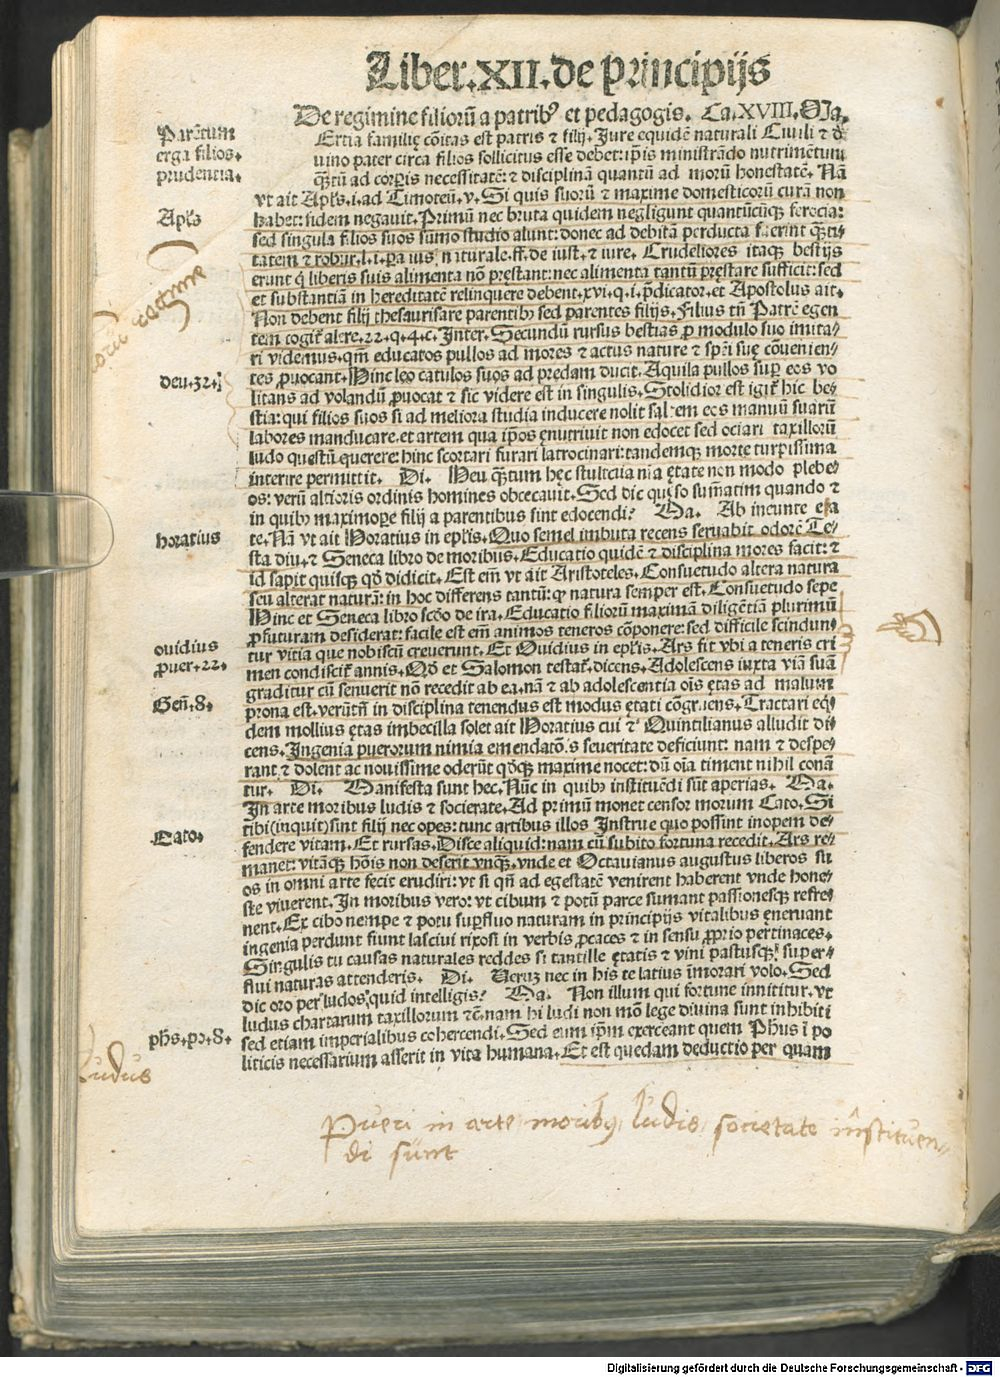 Liber.XII.de principijs
De regimine filiorū a patribꝰ et pedagogis. Ca.XVIII. Ma.
Parētum
erga filios.
prudentia.
Ertia familię cōitas est patris ⁊ filij. Jure equidē naturali Ciuili ⁊ di
uino pater circa filios sollicitus esse debet: ip̄is ministrādo nutrimētum
q̄ꝫtū ad corꝑis necessitatē: ⁊ disciplinā quantū ad morū honestatē. Nā
vt ait Apl̄s.i.ad Timoteū.v. Si quis suorū ⁊ maxime domesticorū curā non
Apl̄s
habet: fidem negauit. Primū nec bruta quidem negligunt quantūcūqꝫ ferocia:
sed singula filios suos sūmo studio alunt: donec ad debitā perducta fuerint q̄ꝫti-
tatem ⁊ robur.l.i.para ius naturale.ff.de iust.⁊ iure. Crudeliores itaqꝫ bestijs
erunt q̇ liberis suis alimenta nō pręstant: nec alimenta tantū pręstare sufficit: sed
et substantiā in hereditatē relinquere debent.xvi.q.i.p̄dicator.et Apostolus ait.
Non debent filij thesaurisare parentibꝫ sed parentes filijs. Filius tn̄ Patrē egen
tem cogit̄ alere.22.q.4.c.Inter. Secundū rursus bestias ꝓ modulo suo imita-
ri videmus. qm̄ educatos pullos ad mores ⁊ actus nature ⁊ sp̄ēi suę cōuenien-
deu.32.
tes ꝓuocant. Hinc leo catulos suos ad predam ducit. Aquila pullos suꝑ eos vo
litans ad volandū ꝓuocat ⁊ sic videre est in singulis. Stolidior est igit̄ hic be-
stia: qui filios suos si ad meliora studia inducere nolit saltem eos manuū suarū
labores manducare.et artem qua ip̄os ęnutriuit non edocet sed ociari taxillorū
ludo questū querere: hinc scortari furari latrocinari: tandemqꝫ morte turpissima
interire permittit. Di. Heu q̄ꝫtum hęc stulticia nr̄a ętate non modo plebe-
os: verū altioris ordinis homines obcecauit. Sed dic quęso sum̄atim quando ⁊
in quibꝫ maximoꝑe filij a parentibus sint edocendi? Ma. Ab ineunte eta
horatius
te. Nā vt ait Horatius in epl̄is. Quo semel imbuta recens seruabit odorē Te-
sta diu. ⁊ Seneca libro de moribus. Educatio quidē ⁊ disciplina mores facit: ⁊
id sapit quisqꝫ qd̄ didicit. Est em̄ vt ait Aristoteles. Consuetudo altera natura
seu alterat naturā: in hoc differens tantū: ꝙ natura semper est. Consuetudo sepe
Hinc et Seneca libro scd̄o de ira. Educatio filiorū maximā diligētiā plurimū
ꝓfuturam desiderat: facile est em̄ animos teneros cōponere: sed difficile scindun-
ouidius
ꝓuer.22.
tur vitia que nobiscū creuerunt. Et Ouidius in epl̄is. Ars fit vbi a teneris cri
men condiscit̄ annis. Qd̄ et Salomon testat̄.dicens. Adolescens iuxta viā suā
graditur cū senuerit nō recedit ab ea.nā ⁊ ab adolescentia oīs ętas ad malum
Geñ.8.
prona est. verūtn̄ in disciplina tenendus est modus ętati cōgruens. Tractari eq̇
dem mollius ętas imbecilla solet ait Horatius cui ⁊ Quintilianus alludit di
cens. Ingenia puerorum nimia emendatōis seueritate deficiunt: nam ⁊ despe-
rant ⁊ dolent ac nouissime oderūt qd̄qꝫ maxime nocet: dū oīa timent nihil conā
tur. Di. Manifesta sunt hec. Nūc in quibꝫ instituēdi sūt aperias. Ma.
In arte moribus ludis ⁊ societate. Ad primū monet censor morum Cato. Si
tibi (inquit) sint filij nec opes: tunc artibus illos Instrue quo possint inopem de-
Cato.
fendere vitam. Et rursas. Disce aliquid: nam cū subito fortuna recedit. Ars re-
manet: vitāqꝫ hōīs non deserit vnq̄ꝫ. vnde et Octauianus augustus liberos su
os in omni arte fecit erudiri: vt si qn̄ ad egestatē venirent haberent vnde hone-
ste viuerent. In moribus vero: vt cibum ⁊ potū parce sumant passionesqꝫ refre
nent. Ex cibo nempe ⁊ potu superfluo naturam in principijs vitalibus ęneruant
ingenia perdunt fiunt lasciui rixosi in verbis ꝓcaces ⁊ in sensu ꝓprio pertinaces.
Singulis tu causas naturales reddes si tantille ętatis ⁊ vini pastusqꝫ super-
flui naturas attenderis. Di. Veruꝫ nec in his te latius īmorari volo. Sed
dic oro per ludos quid intelligis? Ma. Non illum qui fortune innititur. vt
ludus chartarum taxillorum ⁊c̄.nam hi ludi non mō lege diuina sunt inhibiti
phs.po.8.
sed etiam imperialibus cohercendi. Sed eum ip̄m exerceant quem Phūs ī po
liticis necessarium asserit in vita humana. Et est quedam deductio per quam
Ludus
Pueri in arte moribꝫ ludis societate īnstituen-
di sūnt
Digitalisierung gefördert durch die Deutsche Forschungsgemeinschaft - DFG